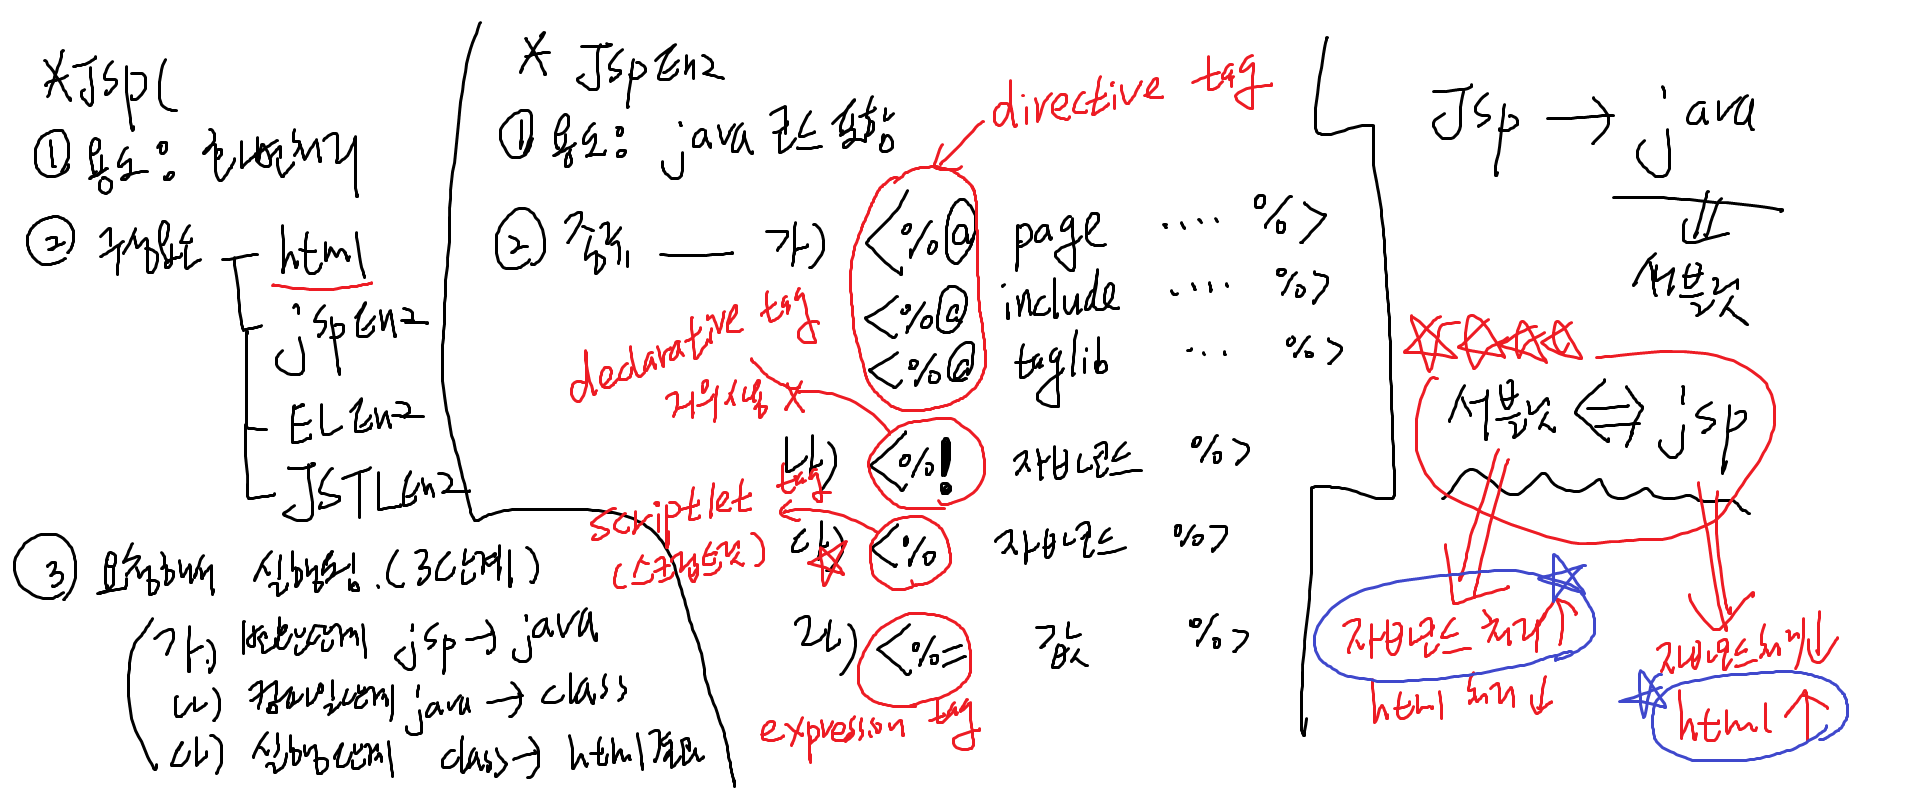 *JSP(
① 용도: 화면처리
② 구성요소 html
jsp태그
EL태그
JSTL태그
③ 요청해서 실행됨.(3단계)
가) 변환단계 jsp → java
나) 컴파일단계 java → class
다) 실행단계 class → html결과
* JSP태그
① 용도: java 코드 포함
directive tag
② 종류 가) <%@ page .... %>
<%@ include .... %>
<%@ taglib ... %>
declarative tag
거의사용 X
나) <%! 자바코드 %>
scriptlet tag
(스크립트릿)
다) <% 자바코드 %>
라) <%= 값 %>
expression tag
Jsp → java
서블릿
서블릿 ⇔ jsp
자바코드 처리↑
html 처리↓
자바코드처리↓
html ↑